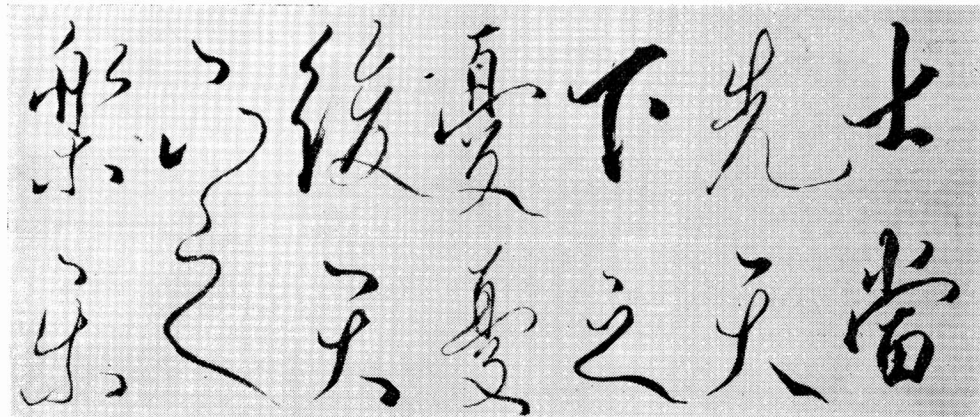 士當
先天
下之
憂憂
後天
下之
樂樂